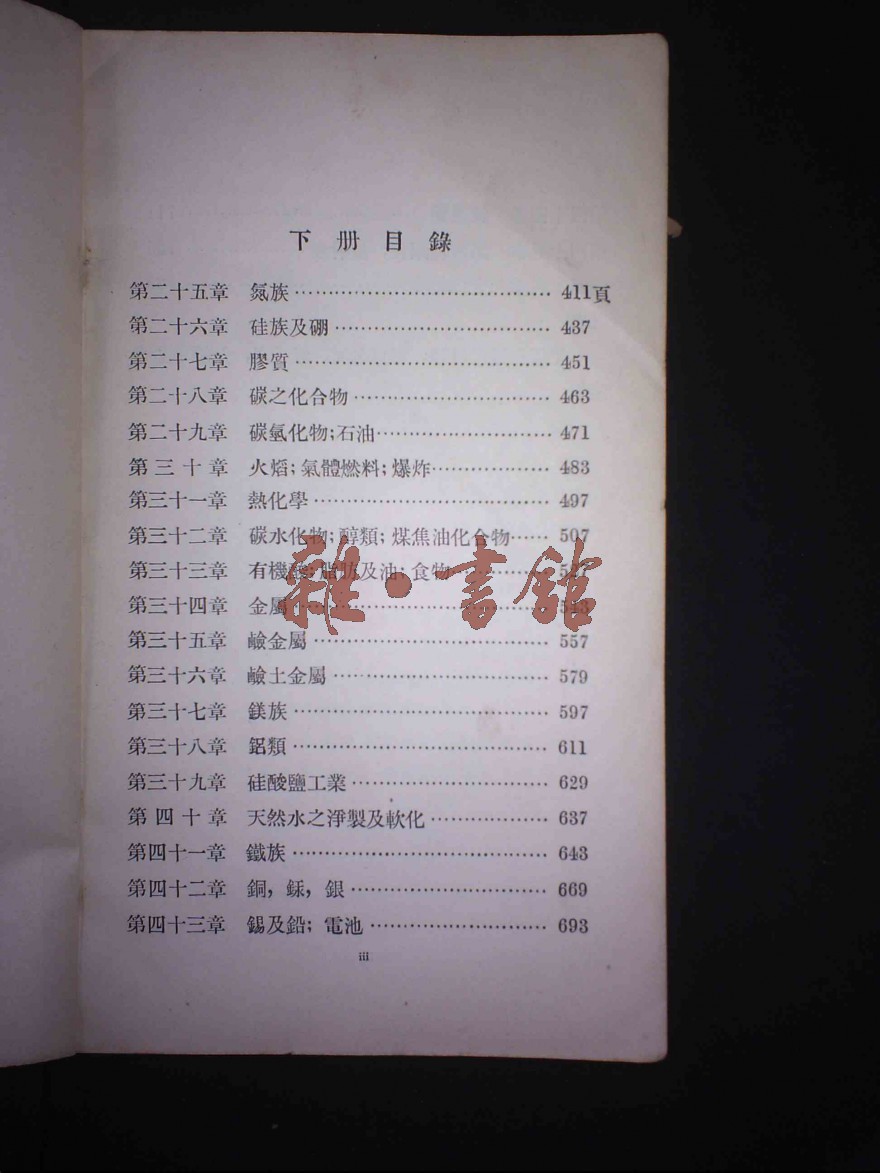 下册目錄
第二十五章 氮族 411頁
第二十六章 硅族及硼 437
第二十七章 膠質 451
第二十八章 碳之化合物 463
第二十九章 碳氫化物;石油 471
第三十章 火熖;氣體燃料;爆炸 483
第三十一章 熱化學 497
第三十二章 碳水化物;醇類;煤焦油化合物 507
第三十三章 有機酸;脂肪及油;食物
第三十四章 金屬
第三十五章 鹼金屬 557
第三十六章 鹼土金屬 579
第三十七章 鎂族 597
第三十八章 鋁類 611
第三十九章 硅酸鹽工業 629
第四十章 天然水之淨製及軟化 637
第四十一章 鐵族 643
第四十二章 銅,銾,銀 669
第四十三章 錫及鉛;電池 693
iii
雜·書館